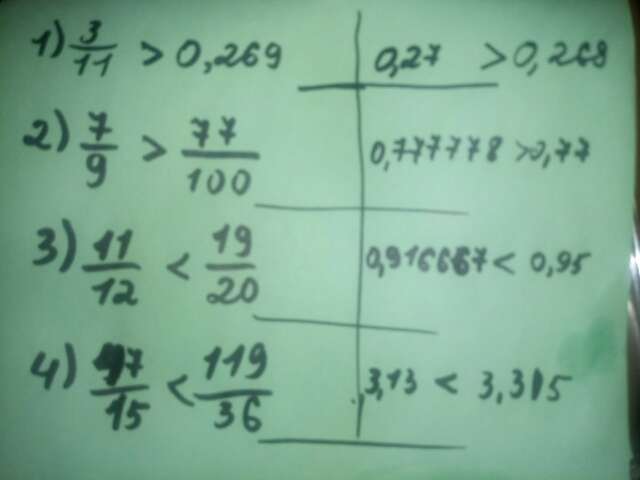 1) 3/11 > 0,269 0,27 > 0,268
2) 7/9 > 77/100 0,777778 > 0,77
3) 11/12 < 19/20 0,916667 < 0,95
4) 47/15 < 119/36 3,13 < 3,315